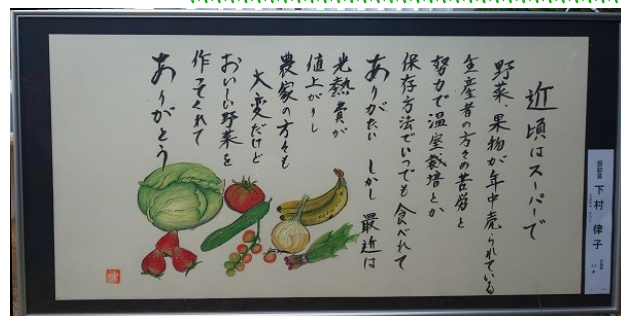 近頃はスーパーで
野菜、果物が年中売られている
生産者の方々の苦労と
努力で温室栽培とか
保存方法でいつでも食べれて
ありがたい しかし 最近は
光熱費が
値上がりし
農家の方々も
大変だけど
おいしい野菜を
作ってくれて
ありがとう
下村 律子